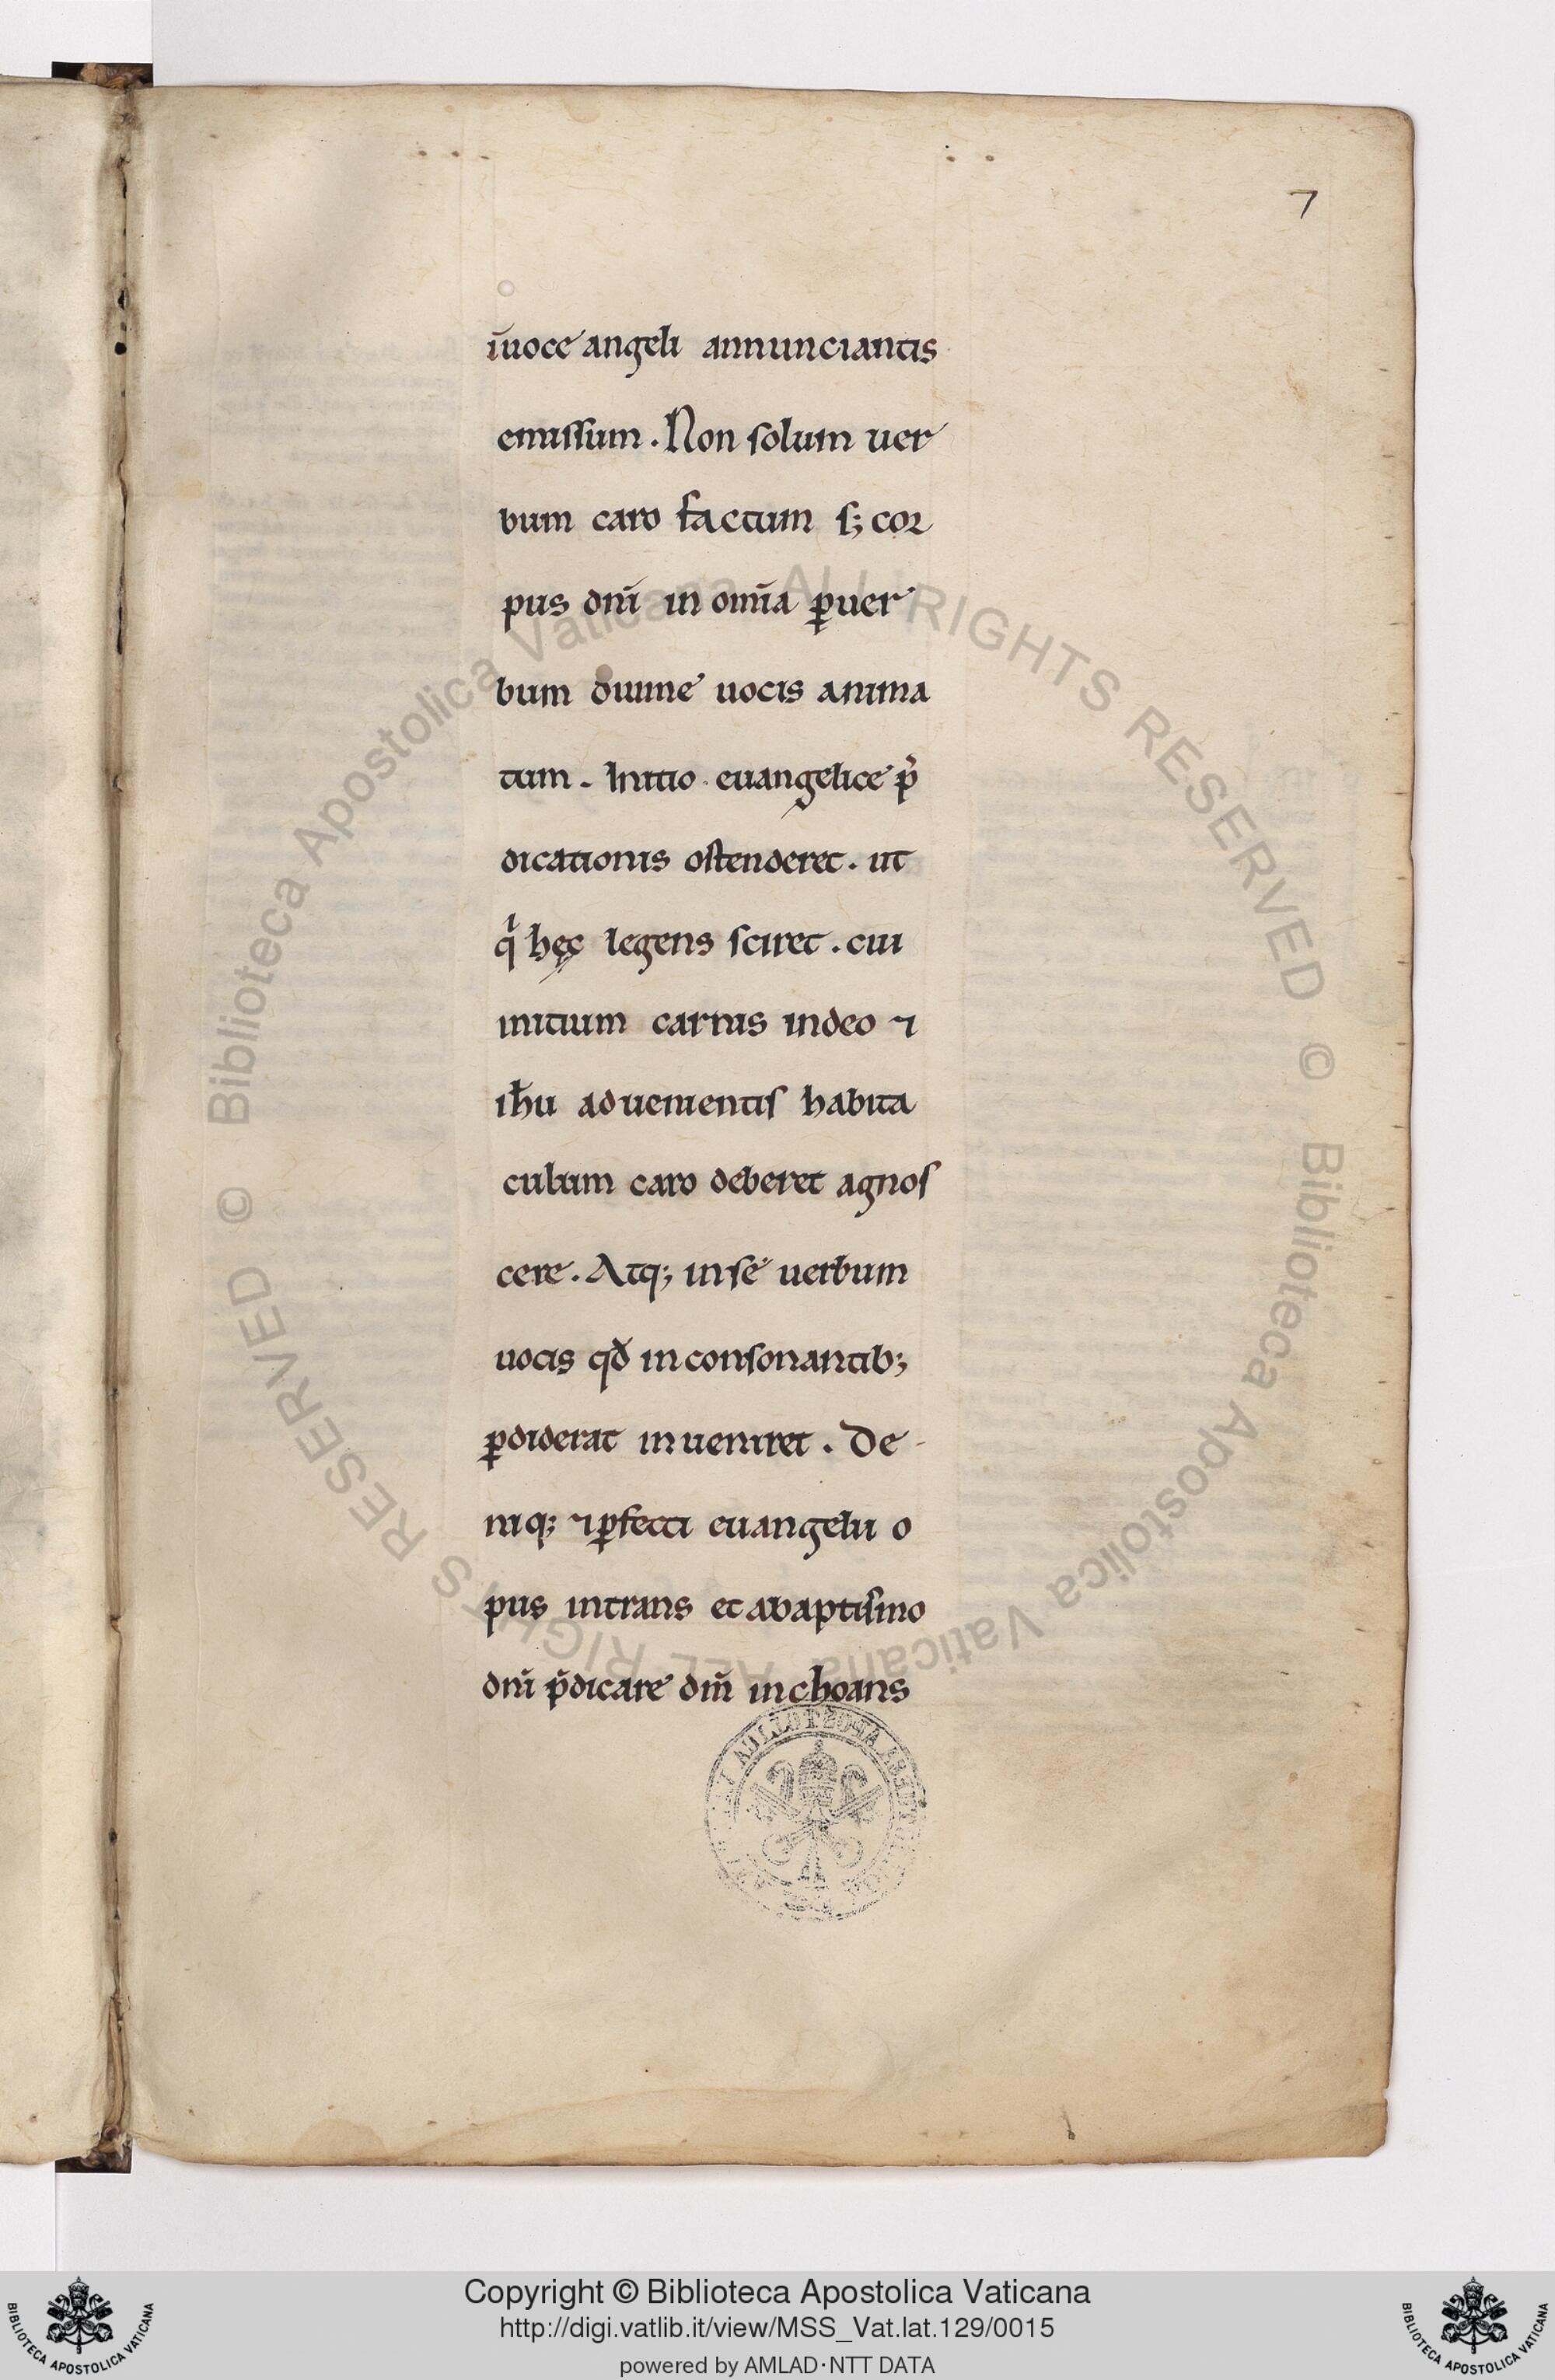 7
ī uoce angeli annunciantis
emissum. Non solum uer
bum caro factum s; cor
pus dn̄i in om̄ia ꝑ uer
bum diuine uocis anima
tum. Initio euangelice p̄
dicationis ostenderet. ut
qi hęc legens sciret. cui
initium carnis in deo ⁊
ih̄u aduenientis habita
culum caro deberet agnos
cere. Atq; in se uerbum
uocis qđ in consonantib;
ꝑdiderat inueniret. De-
niq; ⁊ ꝑfecti euangelii o
pus intrans et a baptismo
dn̄i p̄dicare dm̄ inchoans
© Biblioteca Apostolica Vaticana ALL RIGHTS RESERVED
© Biblioteca Apostolica Vaticana ALL RIGHTS RESERVED
BIBLIOTECA APOSTOLICA VATICANA
Copyright © Biblioteca Apostolica Vaticana
http://digi.vatlib.it/view/MSS_Vat.lat.129/0015
powered by AMLAD·NTT DATA
BIBLIOTECA APOSTOLICA VATICANA